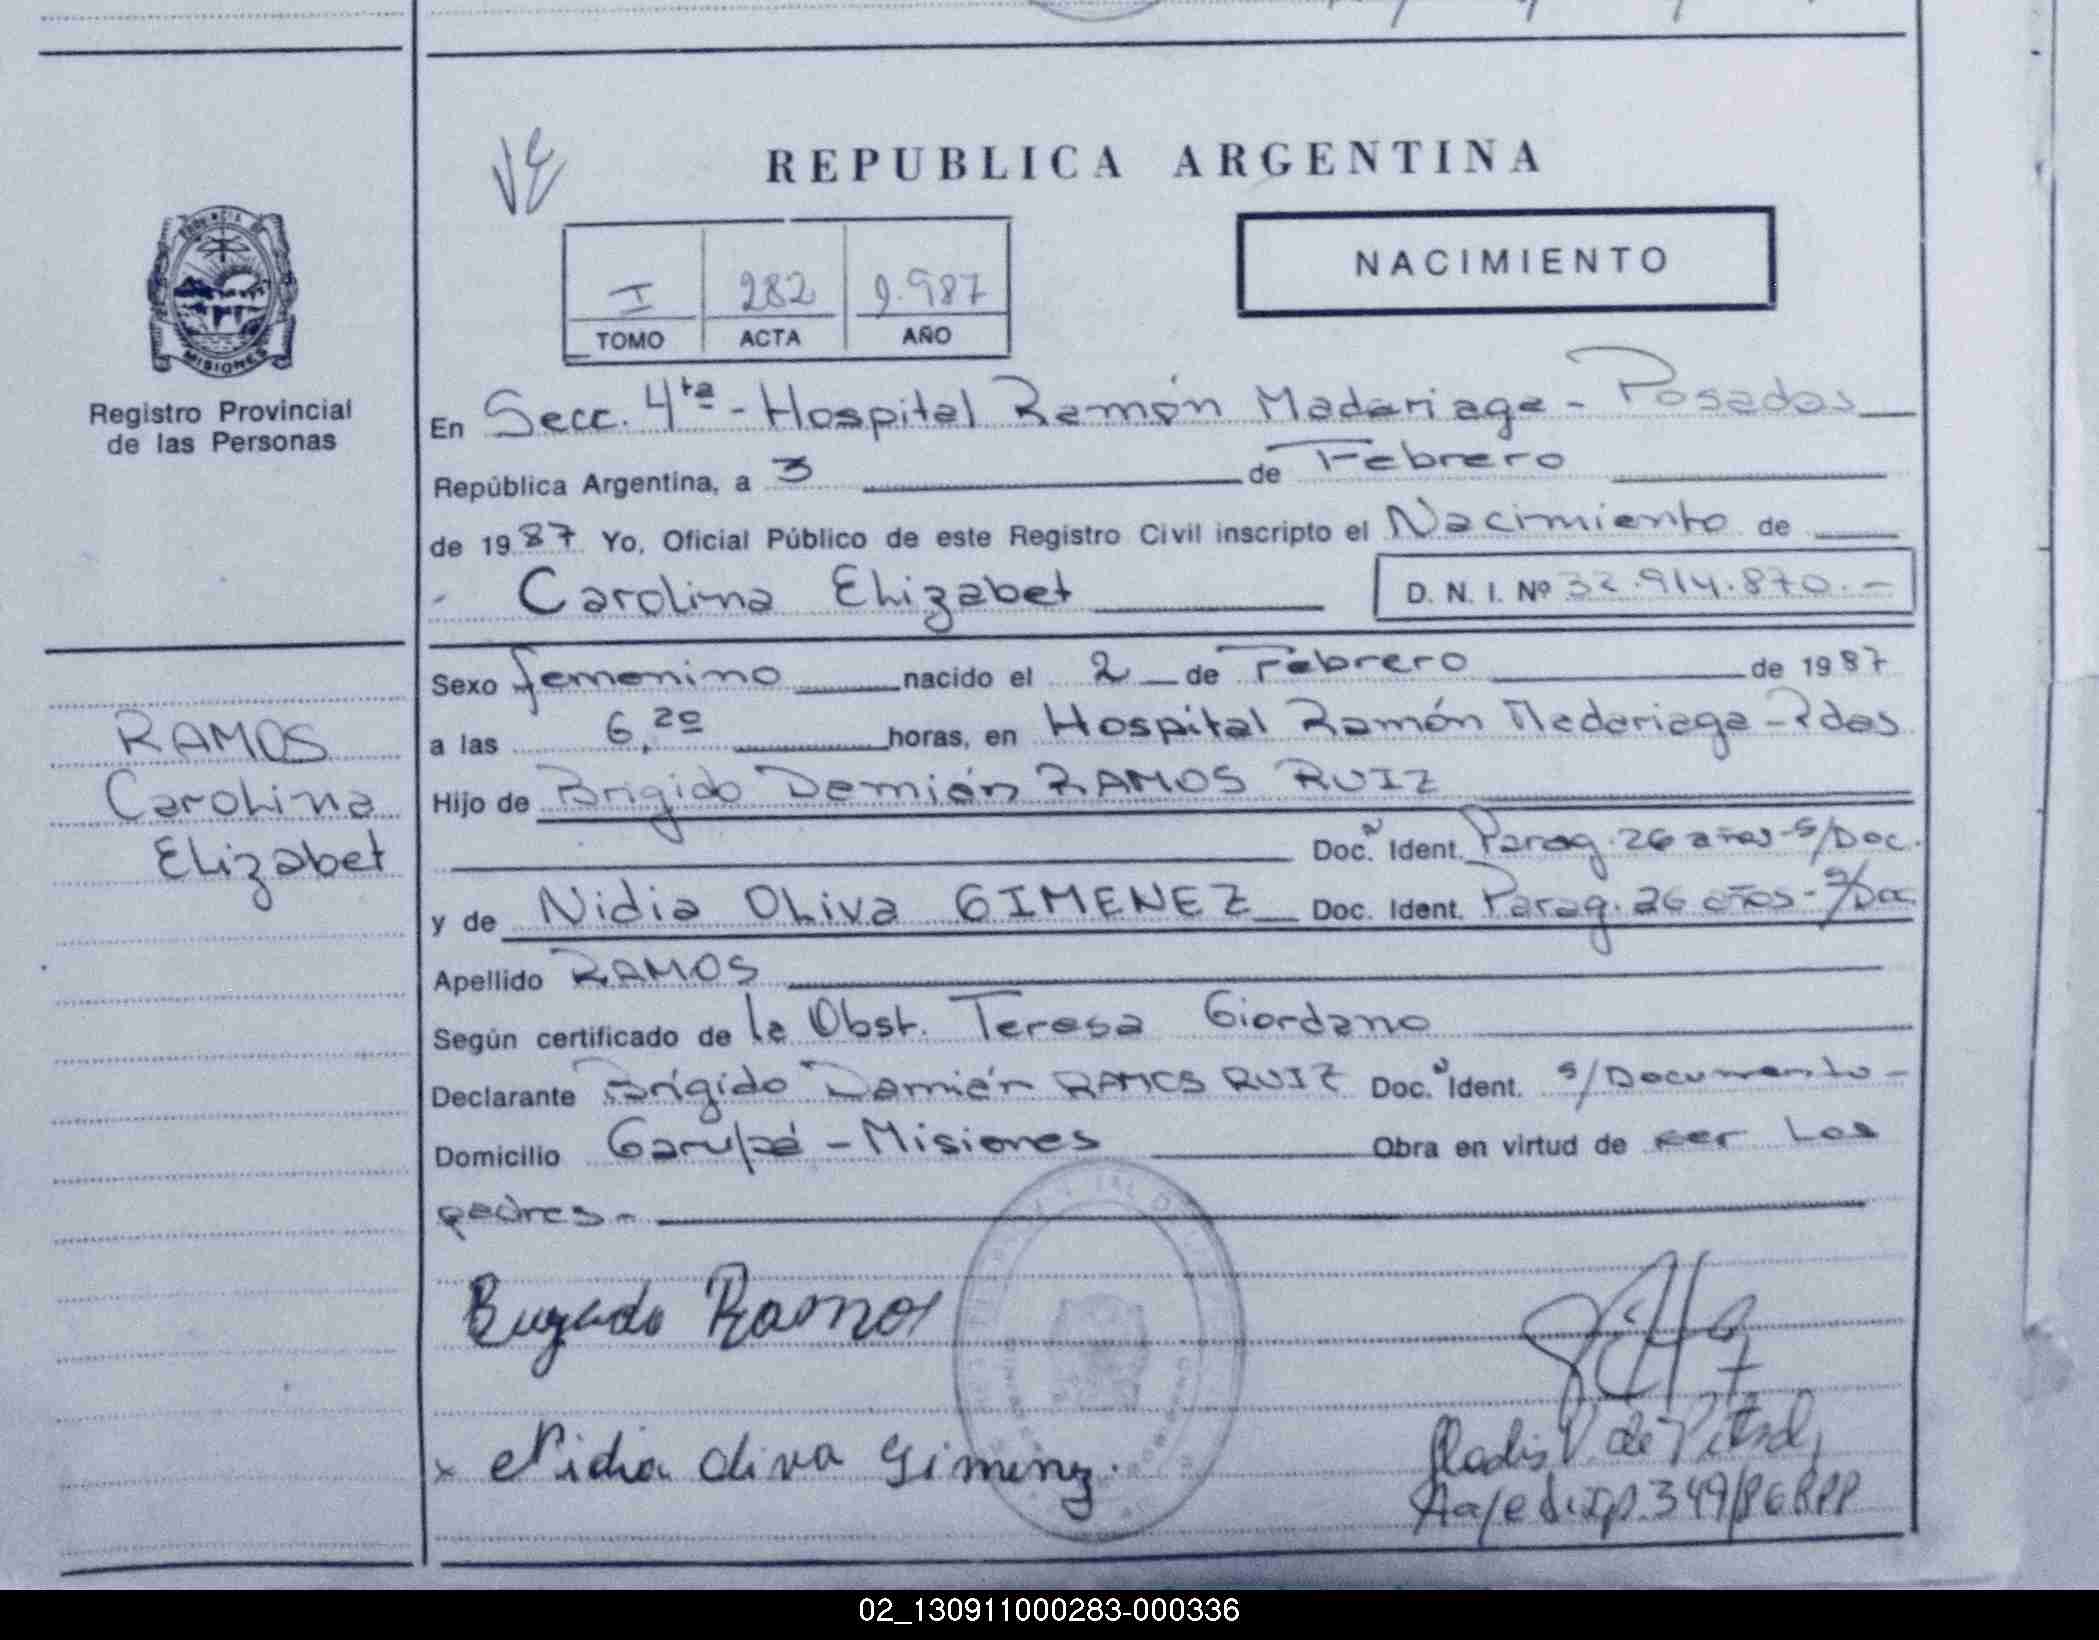 REPUBLICA ARGENTINA
I 282 1.987
TOMO ACTA AÑO
NACIMIENTO
MISIONES
Registro Provincial
de las Personas
En Secc. 4ta - Hospital Ramón Madariaga - Posadas
República Argentina, a 3 de Febrero
de 1987 Yo, Oficial Público de este Registro Civil inscripto el Nacimiento de
Carolina Elizabet D. N. I. Nº 32.914.870.-
Sexo femenino nacido el 2 de Febrero de 1987
a las 6,20 horas, en Hospital Ramón Madariaga - Pdas
Hijo de Brigido Damián RAMOS RUIZ
Doc. Ident. Parag. 26 años - s/Doc.
y de Nidia Oliva GIMENEZ Doc. Ident. Parag. 26 años - s/Doc
Apellido RAMOS
Según certificado de la Obst. Teresa Giordano
Declarante Brígido Damián RAMOS RUIZ Doc. Ident. s/Documento -
Domicilio Garupá - Misiones Obra en virtud de ser los
padres.-
RAMOS
Carolina
Elizabet
Ramos
x Nidia oliva Gimenz.
02_130911000283-000336